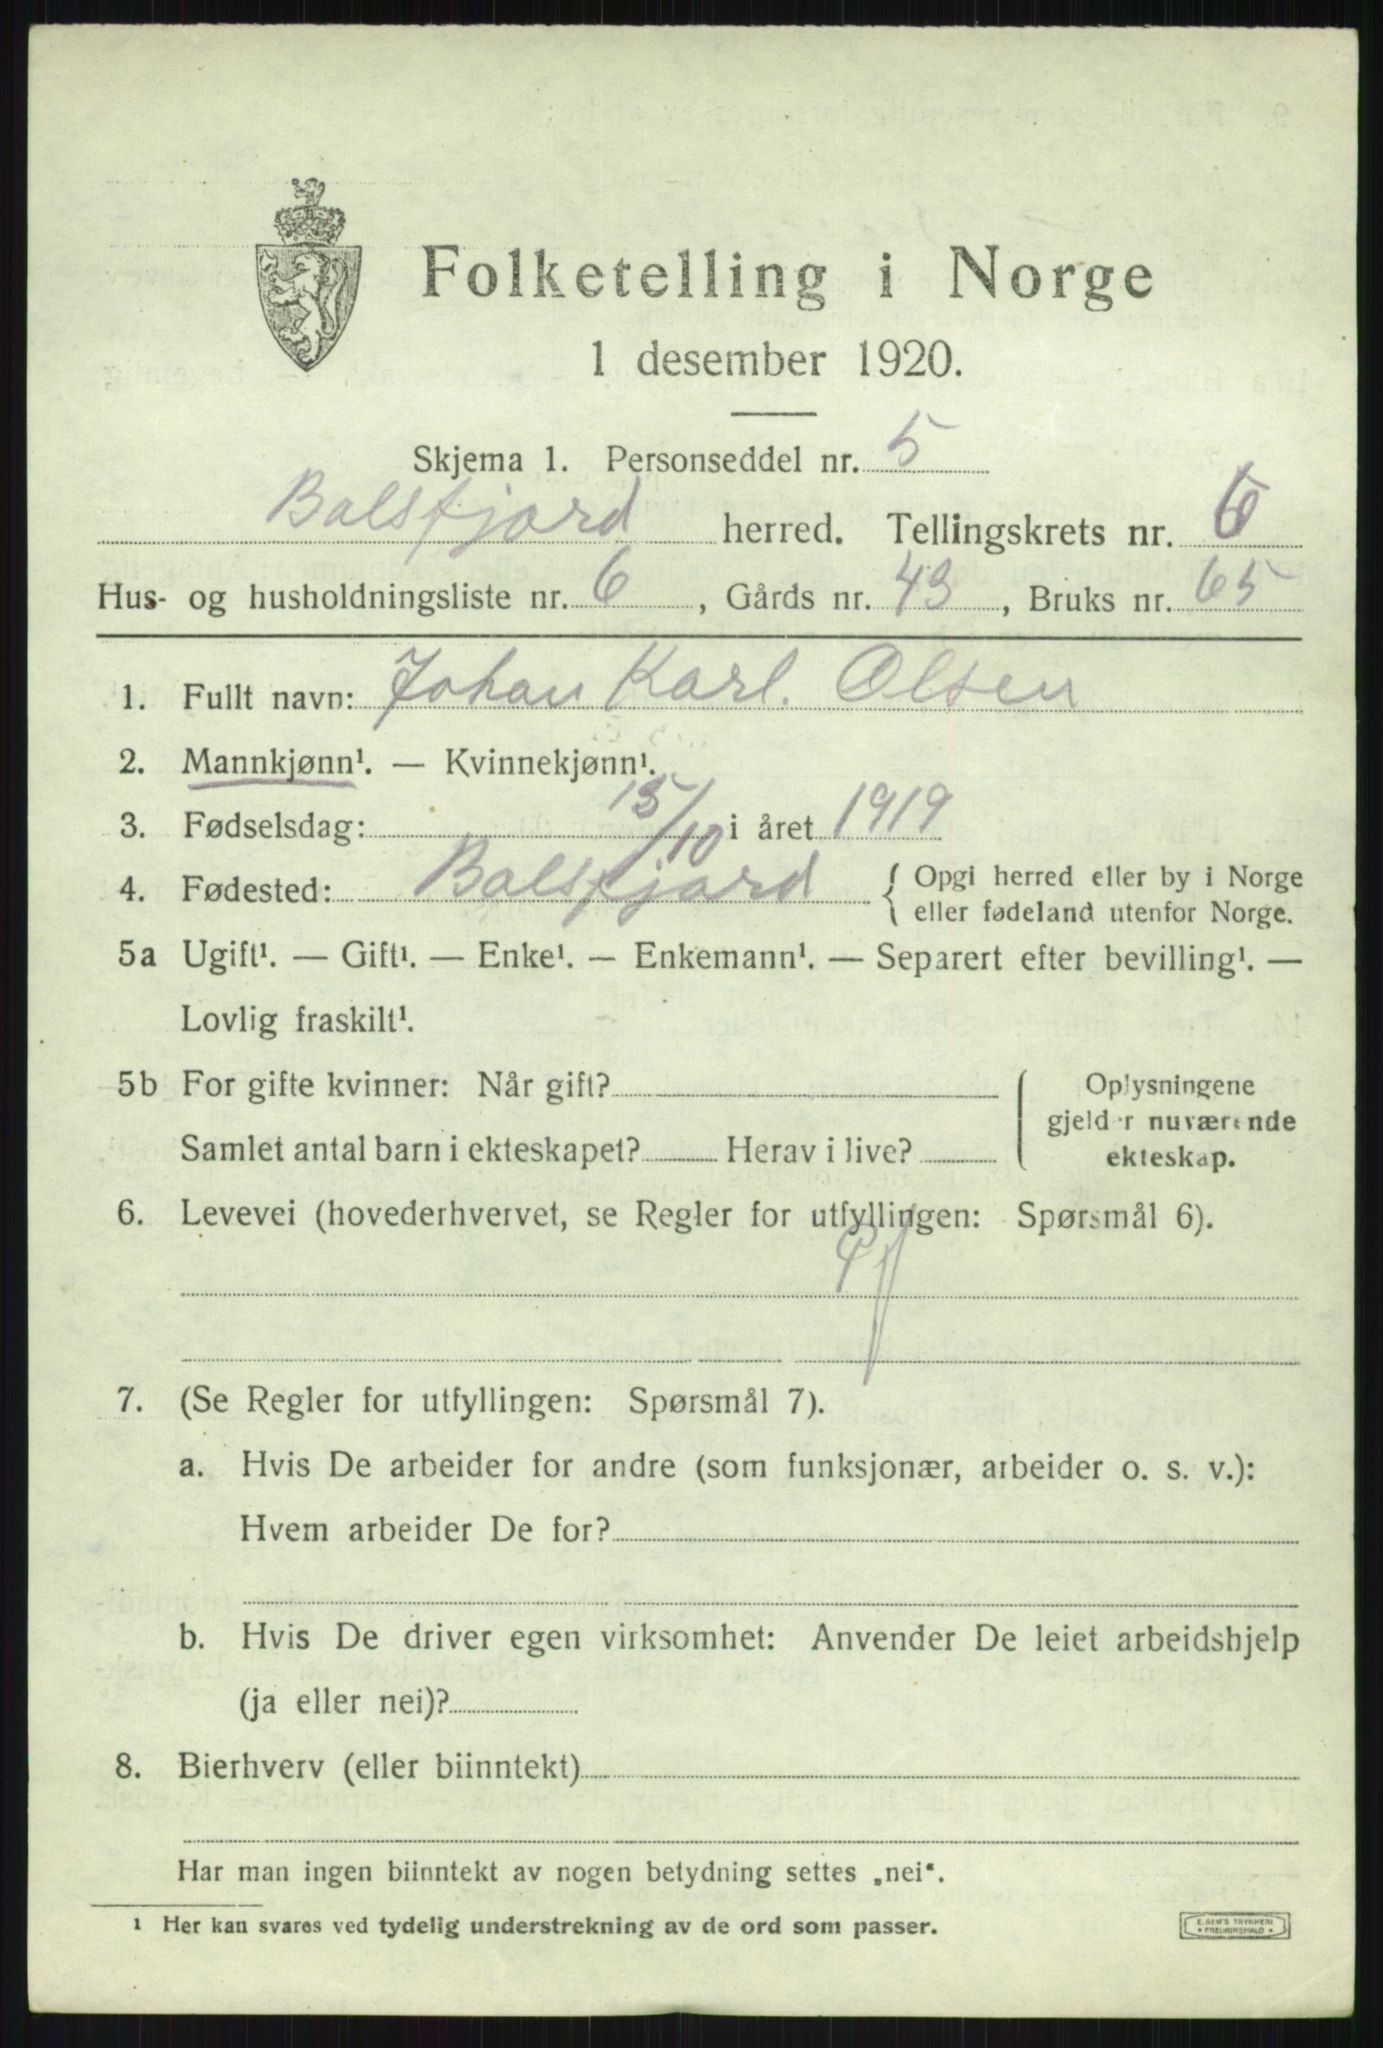 Folketelling i Norge
1 desember 1920.
Skjema 1. Personseddel nr. 5
Balsfjord herred. Tellingskrets nr. 6
Hus- og husholdningsliste nr. 6, Gårds nr. 43, Bruks nr. 65
1. Fullt navn: Johan Karl. Olsen
2. Mannkjønn¹. — Kvinnekjønn¹.
3. Fødselsdag: 15/10 i året 1919
4. Fødested: Balsfjord { Opgi herred eller by i Norge
eller fødeland utenfor Norge.
5a Ugift¹. — Gift¹. — Enke¹. — Enkemann¹. — Separert efter bevilling¹. —
Lovlig fraskilt¹.
5b For gifte kvinner: Når gift?
Samlet antal barn i ekteskapet? Herav i live?
Oplysningene
gjelder nuværende
ekteskap.
6. Levevei (hovederhvervet, se Regler for utfyllingen: Spørsmål 6).
7. (Se Regler for utfyllingen: Spørsmål 7).
a. Hvis De arbeider for andre (som funksjonær, arbeider o. s. v.):
Hvem arbeider De for?
b. Hvis De driver egen virksomhet: Anvender De leiet arbeidshjelp
(ja eller nei)?
8. Bierhverv (eller biinntekt)
Har man ingen biinntekt av nogen betydning settes „nei“.
1 Her kan svares ved tydelig understrekning av de ord som passer.
E. SEM'S TRYKKERI
• FREDRIKSHALD •